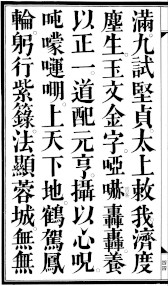 滿九試堅貞太上敕我濟度
塵生玉文金字啞嚇轟轟養
以正一道配元亨攝以心呪
吨㠓嚏嘲上天下地鶴駕鳳
輪躬行紫籙法顯蓉城無無